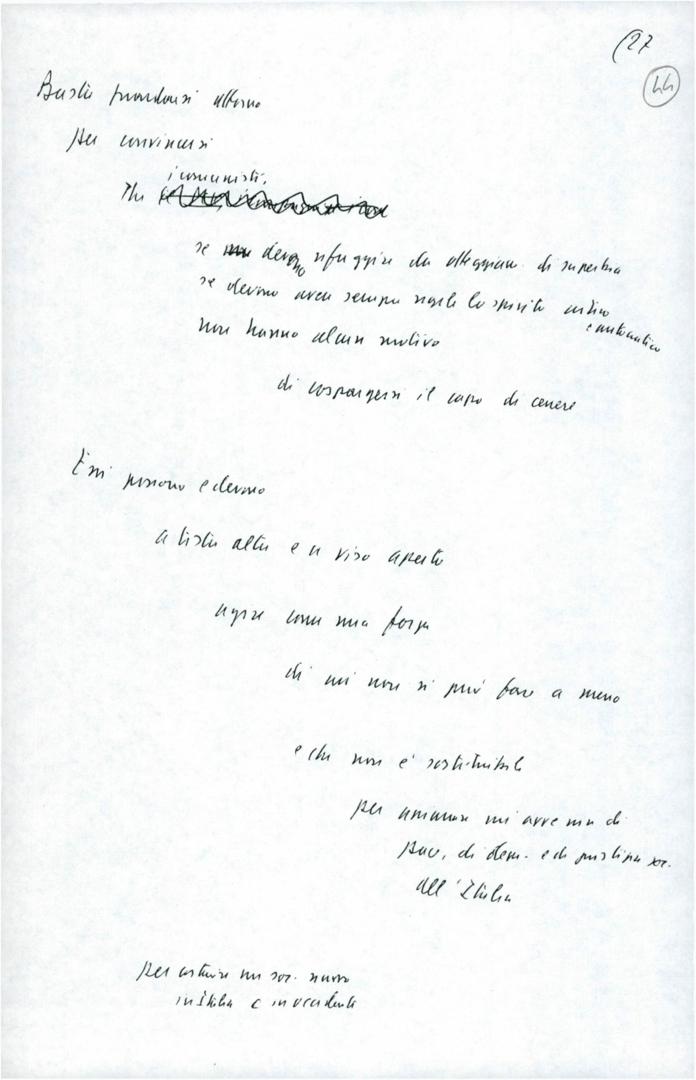 (27
44
Basta guardarsi attorno
per convincersi
i comunisti,
che
se devono rifuggire da atteggiam. di superbia
se devono avere sempre vigile lo spirito critico
e autocritico
non hanno alcun motivo
di cospargersi il capo di cenere
Essi possono e devono
a testa alta e a viso aperto
agire come una forza
di cui non si può fare a meno
e che non è sostituibile
per un avvenire di
pace, di dem. e di giustizia soc.
all'Italia
per costruire un soc. nuovo
in Italia e in occidente